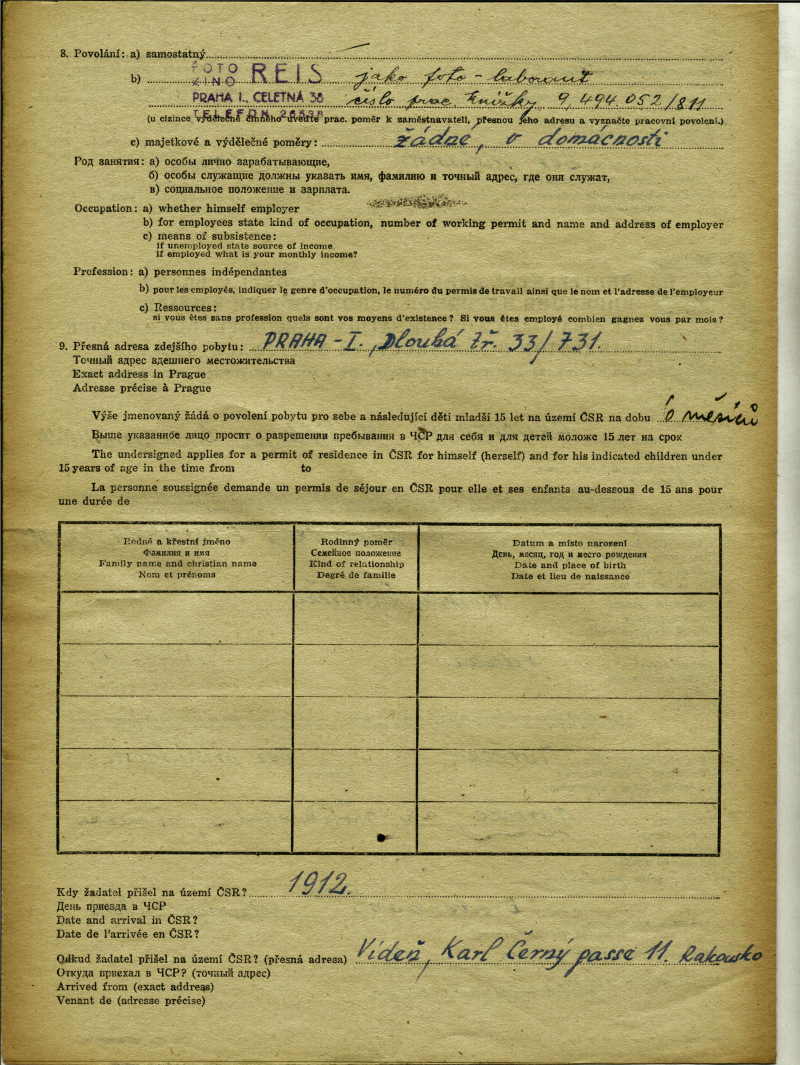 8. Povolání: a) samostatný
b) FOTO KINO REIS jako foto-laborant
PRAHA I., CELETNÁ 38 číslo prac. knížky 9,494.052/811
TELEFON
(u cizince výdělečně činného uveďte prac. poměr k zaměstnavateli, přesnou jeho adresu a vyznačte pracovní povolení.)
c) majetkové a výdělečné poměry: žádné, v domácnosti
Род занятия: а) особы лично зарабатывающие,
б) особы служащие должны указать имя, фамилию и точный адрес, где они служат,
в) социальное положение и зарплата.
Occupation: a) whether himself employer
b) for employees state kind of occupation, number of working permit and name and address of employer
c) means of subsistence:
if unemployed state source of income
if employed what is your monthly income?
Profession: a) personnes indépendantes
b) pour les employés, indiquer le genre d'occupation, le numéro du permis de travail ainsi que le nom et l'adresse de l'employeur
c) Ressources:
si vous êtes sans profession quels sont vos moyens d'existence? Si vous êtes employé combien gagnez vous par mois?
9. Přesná adresa zdejšího pobytu: PRAHA-I., Dlouhá tř. 33/731.
Точный адрес здешнего местожительства
Exact address in Prague
Adresse précise à Prague
Výše jmenovaný žádá o povolení pobytu pro sebe a následující děti mladší 15 let na území ČSR na dobu 6 měsíců
Выше указанное лицо просит о разрешении пребывания в ЧСР для себя и для детей моложе 15 лет на срок
The undersigned applies for a permit of residence in ČSR for himself (herself) and for his indicated children under
15 years of age in the time from to
La personne soussignée demande un permis de séjour en ČSR pour elle et ses enfants au-dessous de 15 ans pour
une durée de
Rodné a křestní jméno
Фамилия и имя
Family name and christian name
Nom et prénoms
Rodinný poměr
Семейное положение
Kind of relationship
Degré de famille
Datum a místo narození
День, месяц, год и место рождения
Date and place of birth
Date et lieu de naissance
Kdy žadatel přišel na území ČSR? 1912.
День приезда в ЧСР
Date and arrival in ČSR?
Date de l'arrivée en ČSR?
Odkud žadatel přišel na území ČSR? (přesná adresa) Vídeň, Karl Černý passe 11. Rakousko
Откуда приехал в ЧСР? (точный адрес)
Arrived from (exact address)
Venant de (adresse précise)